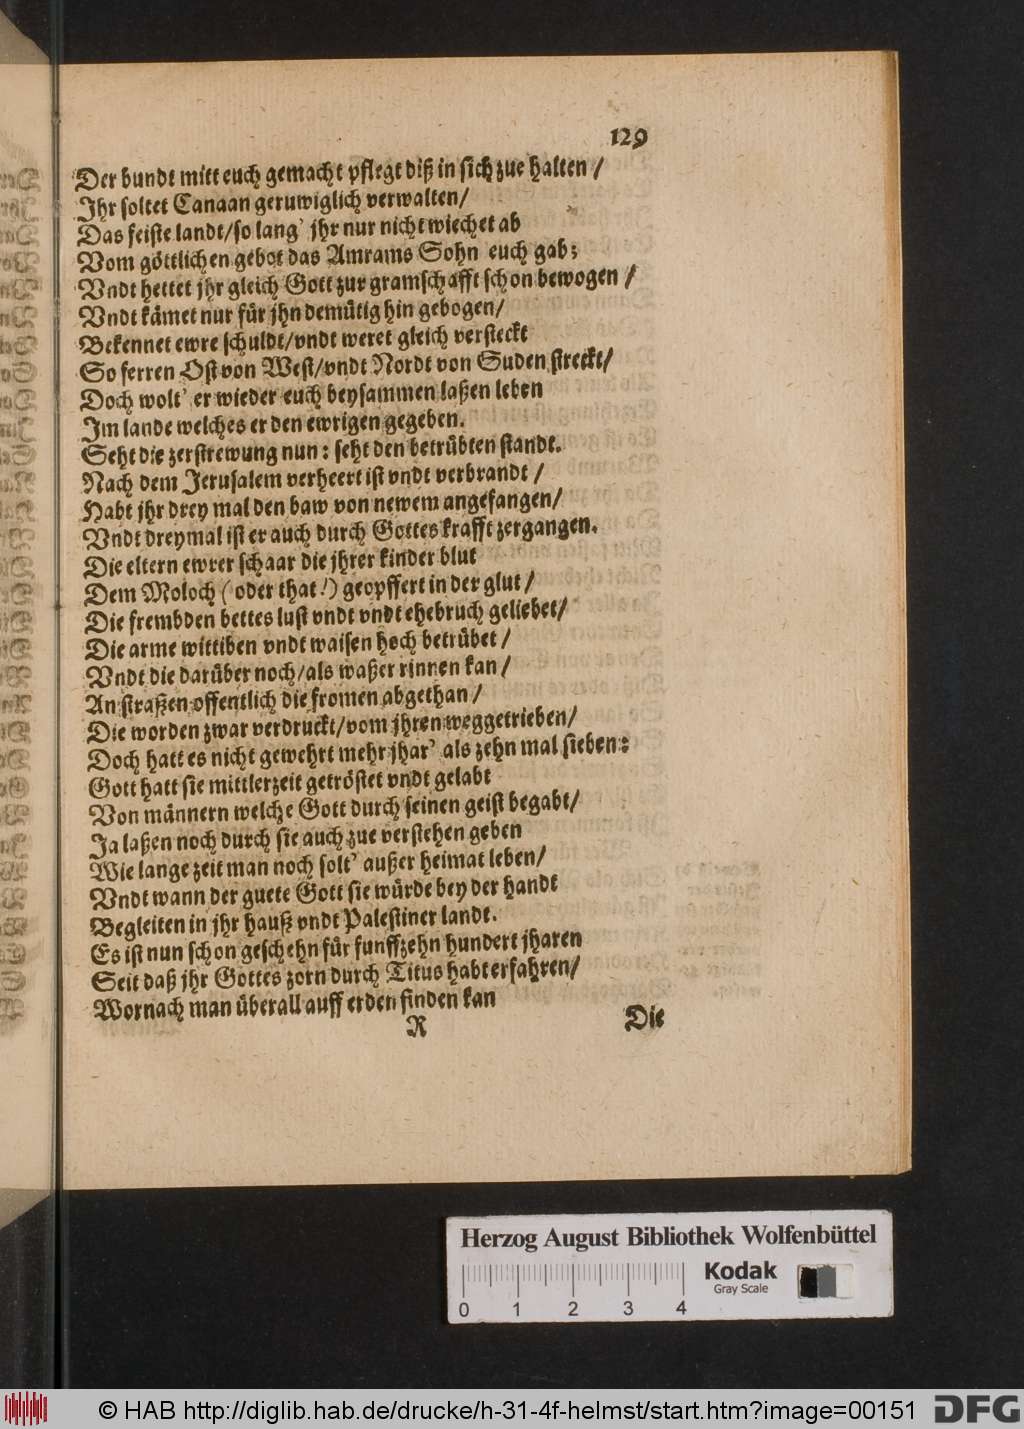 129
Der bundt mitt euch gemacht pflegt diß in sich zue halten /
Jhr soltet Canaan geruwiglich verwalten/
Das feiste landt/so lang' jhr nur nicht wiechet ab
Vom göttlichen gebot das Amrams Sohn euch gab;
Vndt hettet jhr gleich Gott zur gramschafft schon bewogen /
Vndt kämet nur für jhn demütig hin gebogen/
Bekennet ewre schuldt/vndt weret gleich versteckt
So ferren Ost von West/vndt Nordt von Suden streckt/
Doch wolt' er wieder euch beysammen laßen leben
Jm lande welches er den ewrigen gegeben.
Seht die zerstrewung nun: seht den betrübten standt.
Nach dem Jerusalem verheert ist vndt verbrandt /
Habt jhr drey mal den baw von newem angefangen/
Vndt dreymal ist er auch durch Gottes krafft zergangen.
Die eltern ewrer schaar die jhrer kinder blut
Dem Moloch (oder that!) geopffert in der glut /
Die frembden bettes lust vndt vndt ehebruch geliebet/
Die arme wittiben vndt waisen hoch betrübet /
Vndt die darüber noch/als waßer rinnen kan /
An straßen offentlich die fromen abgethan /
Die worden zwar verdruckt/vom jhren weggetrieben/
Doch hatt es nicht gewehrt mehr jhar' als zehn mal sieben:
Gott hatt sie mittlerzeit getröstet vndt gelabt
Von männern welche Gott durch seinen geist begabt/
Ja laßen noch durch sie auch zue verstehen geben
Wie lange zeit man noch solt' außer heimat leben/
Vndt wann der guete Gott sie würde bey der handt
Begleiten in jhr hauß vndt Palestiner landt.
Es ist nun schon geschehn für funffzehn hundert jharen
Seit daß jhr Gottes zorn durch Titus habt erfahren/
Wornach man überall auff erden finden kan
R
Die
Herzog August Bibliothek Wolfenbüttel
Kodak
Gray Scale
0 1 2 3 4
© HAB http://diglib.hab.de/drucke/h-31-4f-helmst/start.htm?image=00151
DFG